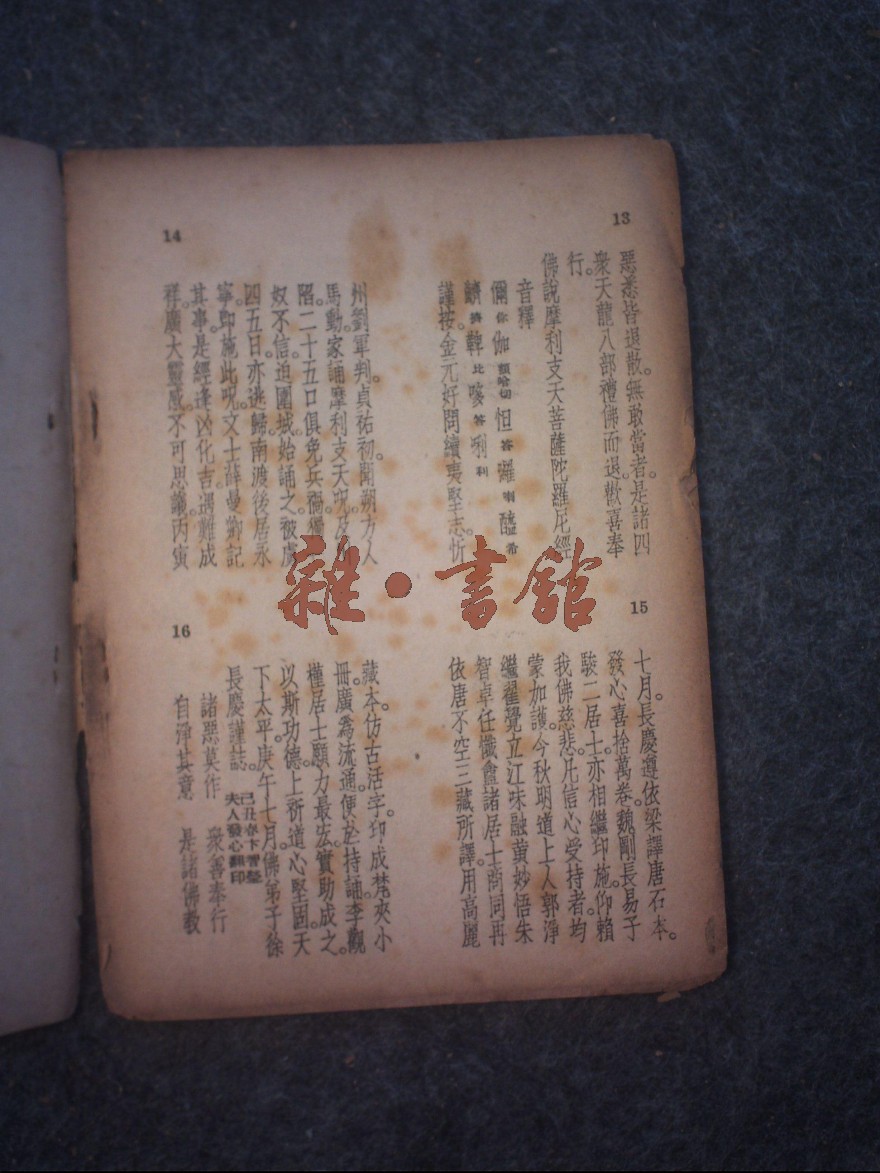 13
惡悉皆退散。無敢當者。是諸四
衆天龍八部禮佛而退。歡喜奉
行。
佛說摩利支天菩薩陀羅尼經
音釋
儞你 伽 額哈切 怛答 羅喇 醯希
齊 鞞比 嗲答 唎利
謹按。金元好問續夷堅志。忻
14
州劉軍判貞祐初。聞朔方人
馬動家誦摩利支天咒
陷。二十五口俱免兵禍。獨
奴不信。迫圍城。始誦之。被虜
四五日。亦逃歸。南渡後居永
寧。即施此咒。文士薛曼卿記
其事。是經逢凶化吉。遇難成
祥。廣大靈感。不可思議。丙寅
雜·書館
15
十月。長慶遵依梁譯唐石本。
發心喜捨萬卷。魏剛長易子
駿二居士。亦相繼印施。仰賴
我佛慈悲。凡信心受持者。均
蒙加護。今秋明道上人郭淨
繼翟覺立江味融黃妙悟朱
智卓任懺盦諸居士商同再
依唐不空三藏所譯。用高麗
16
藏本。仿古活字。印成梵夾小
冊。廣爲流通。便於持誦。李觀
槿居士願力最宏。實助成之。
以斯功德。上祈道心堅固。天
下太平。庚午七月。佛弟子徐
長慶謹誌。
己丑春卞智
夫人發心翻印
諸惡莫作 衆善奉行
自淨其意 是諸佛教